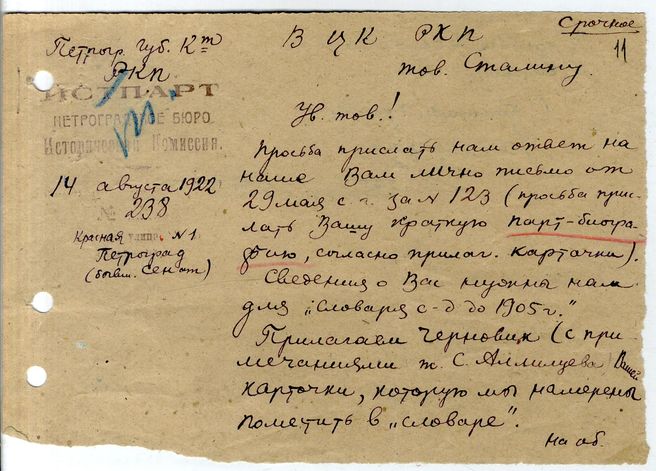 Срочное
11
Петрогр. Губ. Кт
РКП
ИСТПАРТ
ПЕТРОГРАДСКОЕ БЮРО
Исторической Комиссии.
14 августа 1922
№ 238
Красная улица № 1
Петроград
(бывш. Сенат)
В ЦК РКП
тов. Сталину.
Ув. тов.!
Просьба прислать нам ответ на
наше Вам лично письмо от
29 мая с. г. за № 123 (просьба прис-
лать Вашу краткую парт-биогра-
фию, согласно прилаг. карточки).
Сведения о Вас нужны нам
для „Словаря с-д до 1905 г."
Прилагаем черновик (с при-
мечаниями т. С. Аллилуева) Вашей
карточки, которую мы намерены
поместить в „Словаре".
на об.